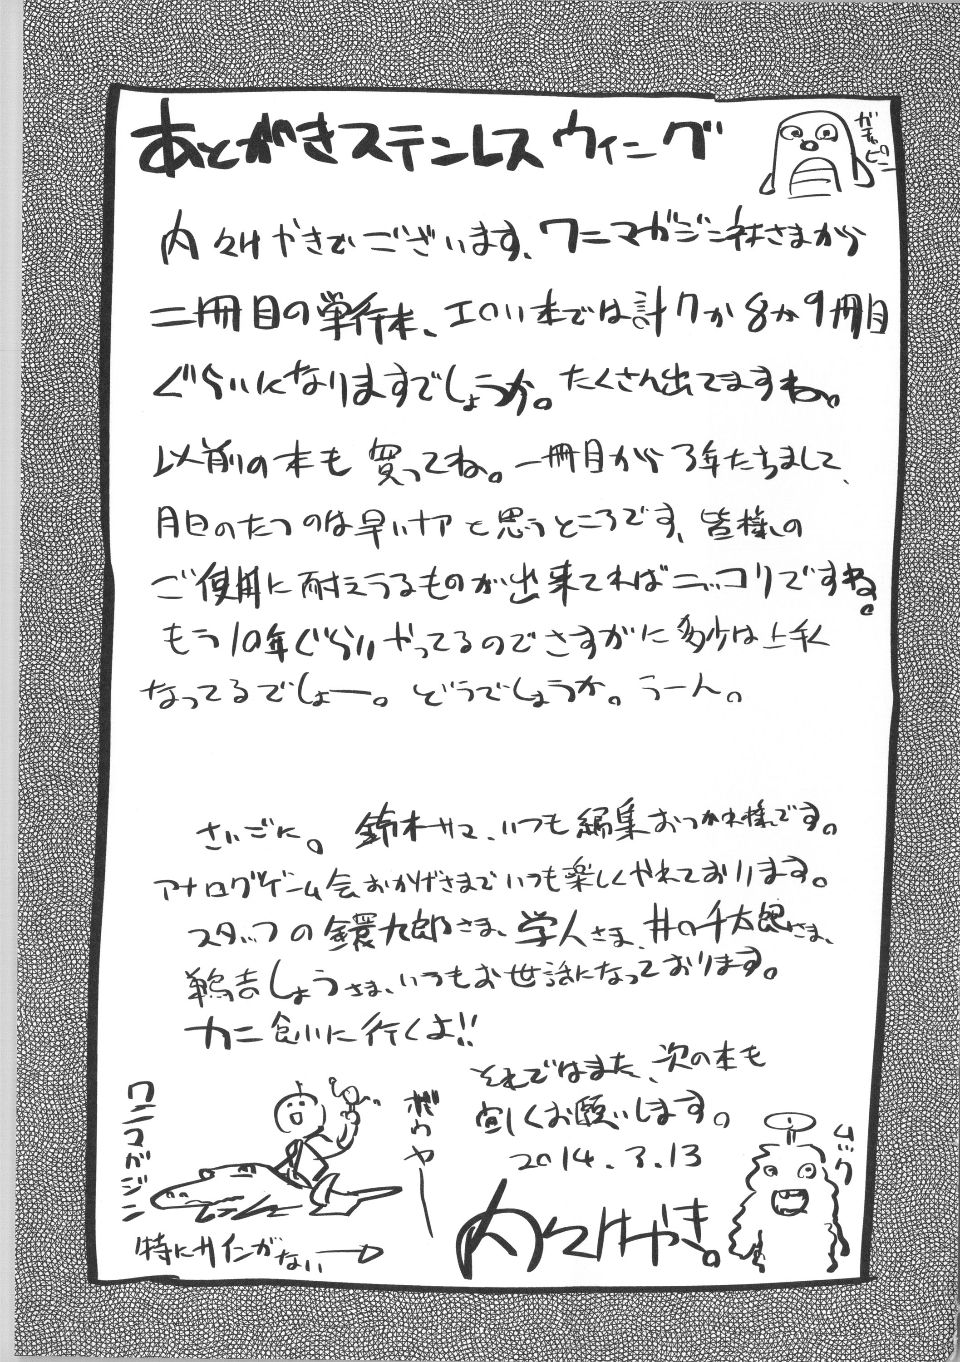 あとがきステンレスウィニーグ
ガチャピン
内々けやきでございます、ワニマガジン社さまから
二冊目の単行本、エロい本では計7か8か9冊目
ぐらいになりますでしょうか。たくさん出てますね。
以前の本も買ってね。一冊目から3年たちまして、
月日のたつのは早いナァと思うところです、皆様の
ご使用に耐えうるものが出来てればニッコリですね。
もう10年ぐらいやってるのでさすがに多少は上手く
なってるでしょー。どうでしょうか。うーん。
さいごに。鈴木サマ、いつも編集おつかれ様です。
アナログゲーム会おかげさまでいつも楽しくやれております。
スタッフの鐶九郎さま、学人さま、井の千太郎さま、
鶴吉しょうさま、いつもお世話になっております。
カニ食いに行くよ!!
それではまた、次の本も
宜しくお願いします。
2014.3.13
内々けやき。
ワニマガジン
ボウヤー
特にサインがない
ムック